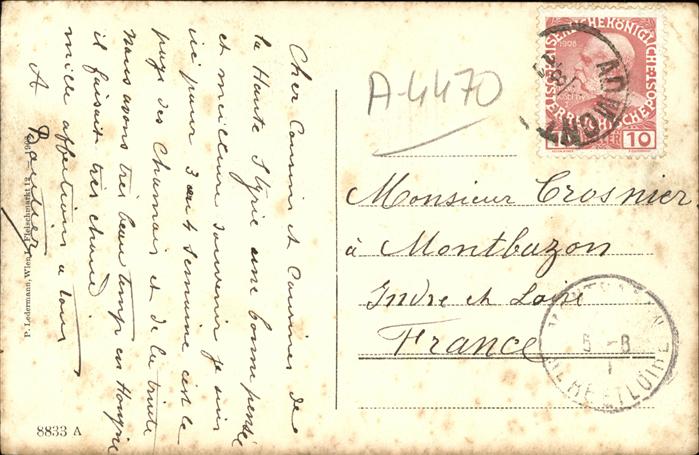 Cher Cousins et Cousines de
la Haute Styrie une bonne pensée
et meilleur souvenir je suis
ici pour 3 ou 4 semaines c'est le
pays des Chamois et de la truite
nous avons très beau temps en Hongrie
il faisait très chaud
mille affections a tous
A
P. Ledermann, Wien I., Fleischmarkt 12
8833 A
A-4470
1908
ADMONT
10
Monsieur Crosnier
à Montbazon
Indre et Loire
France
MONTBAZON
5 -8
INDRE ET LOIRE